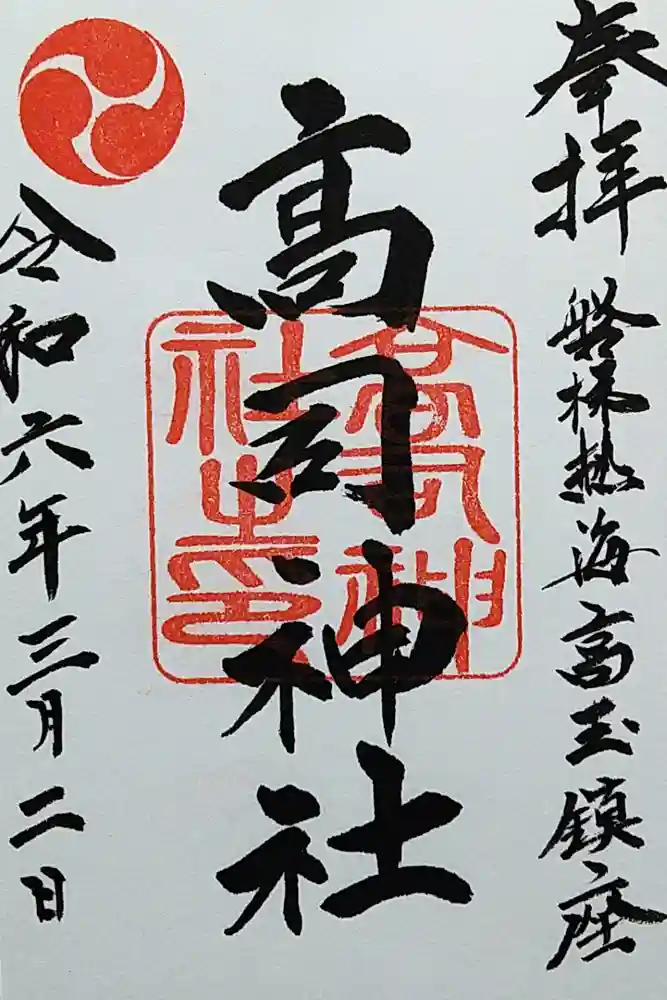 奉拝
磐梯熱海高玉鎮座
高司神社
高司神社之印
令和六年三月二日